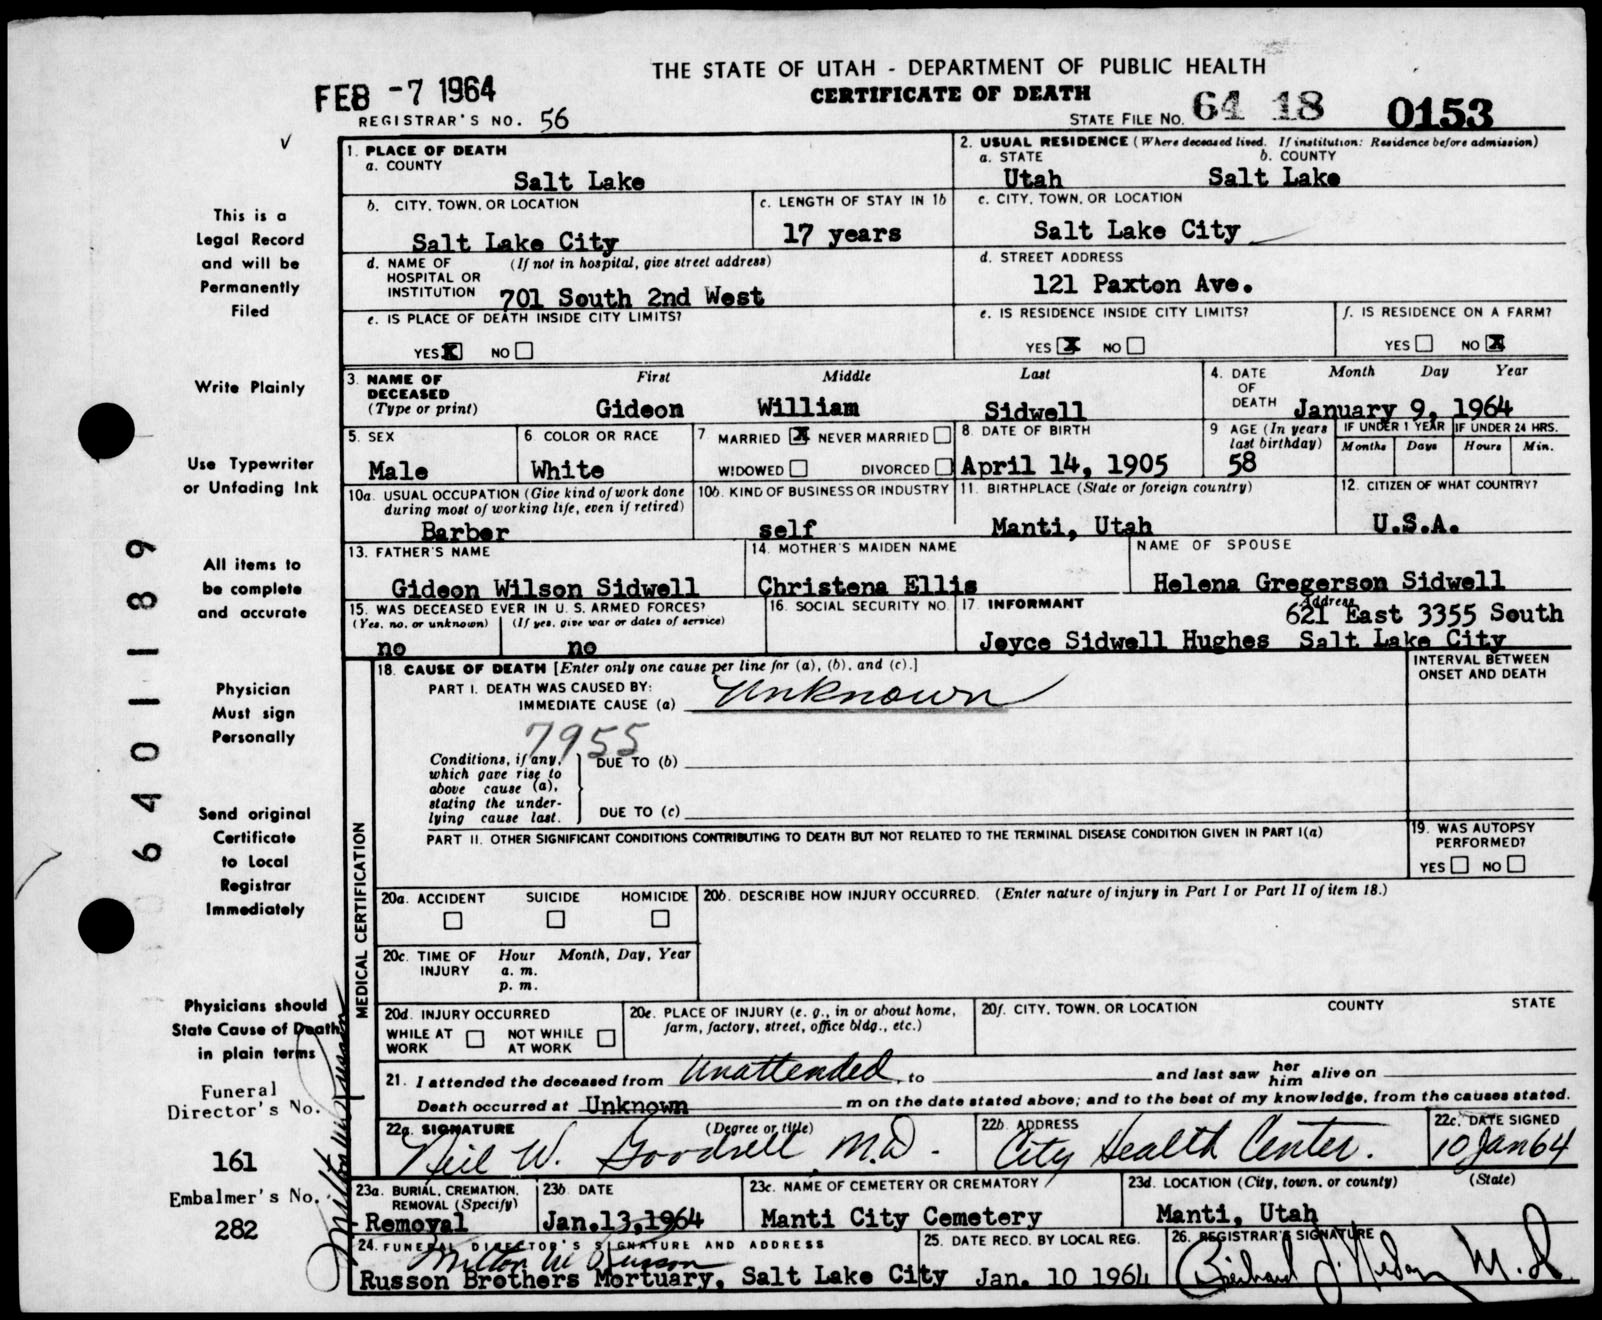 THE STATE OF UTAH - DEPARTMENT OF PUBLIC HEALTH
CERTIFICATE OF DEATH
FEB -7 1964
REGISTRAR'S NO. 56
STATE FILE NO. 64 18 0153
This is a
Legal Record
and will be
Permanently
Filed
Write Plainly
Use Typewriter
or Unfading Ink
All items to
be complete
and accurate
Physician
Must sign
Personally
Send original
Certificate
to Local
Registrar
Immediately
Physicians should
State Cause of Death
in plain terms
Funeral
Director's No.
161
Embalmer's No.
282
6401189
1. PLACE OF DEATH
a. COUNTY
Salt Lake
2. USUAL RESIDENCE (Where deceased lived. If institution: Residence before admission)
a. STATE b. COUNTY
Utah Salt Lake
b. CITY, TOWN, OR LOCATION
Salt Lake City
c. LENGTH OF STAY IN 1b
17 years
c. CITY, TOWN, OR LOCATION
Salt Lake City
d. NAME OF (If not in hospital, give street address)
HOSPITAL OR
INSTITUTION 701 South 2nd West
d. STREET ADDRESS
121 Paxton Ave.
e. IS PLACE OF DEATH INSIDE CITY LIMITS?
YES X NO
e. IS RESIDENCE INSIDE CITY LIMITS?
YES X NO
f. IS RESIDENCE ON A FARM?
YES NO X
3. NAME OF First Middle Last
DECEASED
(Type or print) Gideon William Sidwell
4. DATE Month Day Year
OF
DEATH January 9, 1964
5. SEX
Male
6 COLOR OR RACE
White
7 MARRIED X NEVER MARRIED
WIDOWED DIVORCED
8. DATE OF BIRTH
April 14, 1905
9 AGE (In years
last birthday)
58
IF UNDER 1 YEAR IF UNDER 24 HRS.
Months Days Hours Min.
10a. USUAL OCCUPATION (Give kind of work done
during most of working life, even if retired)
Barber
10b. KIND OF BUSINESS OR INDUSTRY
self
11. BIRTHPLACE (State or foreign country)
Manti, Utah
12. CITIZEN OF WHAT COUNTRY?
U.S.A.
13. FATHER'S NAME
Gideon Wilson Sidwell
14. MOTHER'S MAIDEN NAME
Christena Ellis
NAME OF SPOUSE
Helena Gregerson Sidwell
15. WAS DECEASED EVER IN U. S. ARMED FORCES?
(Yes, no, or unknown) (If yes, give war or dates of service)
no no
16. SOCIAL SECURITY NO.
17. INFORMANT Address
621 East 3355 South
Joyce Sidwell Hughes Salt Lake City
MEDICAL CERTIFICATION
18. CAUSE OF DEATH [Enter only one cause per line for (a), (b), and (c).]
INTERVAL BETWEEN
ONSET AND DEATH
PART I. DEATH WAS CAUSED BY:
IMMEDIATE CAUSE (a) Unknown
7955
Conditions, if any,
which gave rise to
above cause (a),
stating the under-
lying cause last.
DUE TO (b)
DUE TO (c)
PART II. OTHER SIGNIFICANT CONDITIONS CONTRIBUTING TO DEATH BUT NOT RELATED TO THE TERMINAL DISEASE CONDITION GIVEN IN PART I(a)
19. WAS AUTOPSY
PERFORMED?
YES NO
20a. ACCIDENT SUICIDE HOMICIDE
20b. DESCRIBE HOW INJURY OCCURRED. (Enter nature of injury in Part I or Part II of item 18.)
20c. TIME OF Hour Month, Day, Year
INJURY a. m.
p. m.
20d. INJURY OCCURRED
WHILE AT NOT WHILE
WORK AT WORK
20e. PLACE OF INJURY (e. g., in or about home,
farm, factory, street, office bldg., etc.)
20f. CITY, TOWN, OR LOCATION COUNTY STATE
21. I attended the deceased from Unattended, to and last saw her him alive on
Death occurred at Unknown m on the date stated above; and to the best of my knowledge, from the causes stated.
22a. SIGNATURE (Degree or title)
Neil W. Goodsell M.D.
22b. ADDRESS
City Health Center.
22c. DATE SIGNED
10 Jan 64
23a. BURIAL, CREMATION,
REMOVAL (Specify)
Removal
23b DATE
Jan.13,1964
23c. NAME OF CEMETERY OR CREMATORY
Manti City Cemetery
23d. LOCATION (City, town, or county) (State)
Manti, Utah
24. FUNERAL DIRECTOR'S SIGNATURE AND ADDRESS
Milton W Russon
Russon Brothers Mortuary, Salt Lake City
25. DATE RECD. BY LOCAL REG.
Jan. 10 1964
26. REGISTRAR'S SIGNATURE
M.D.